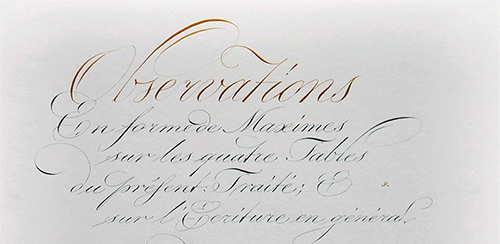 Observations
En forme de Maximes
sur les quatre Tables
du présent Traité; &
sur l'Ecriture en général.